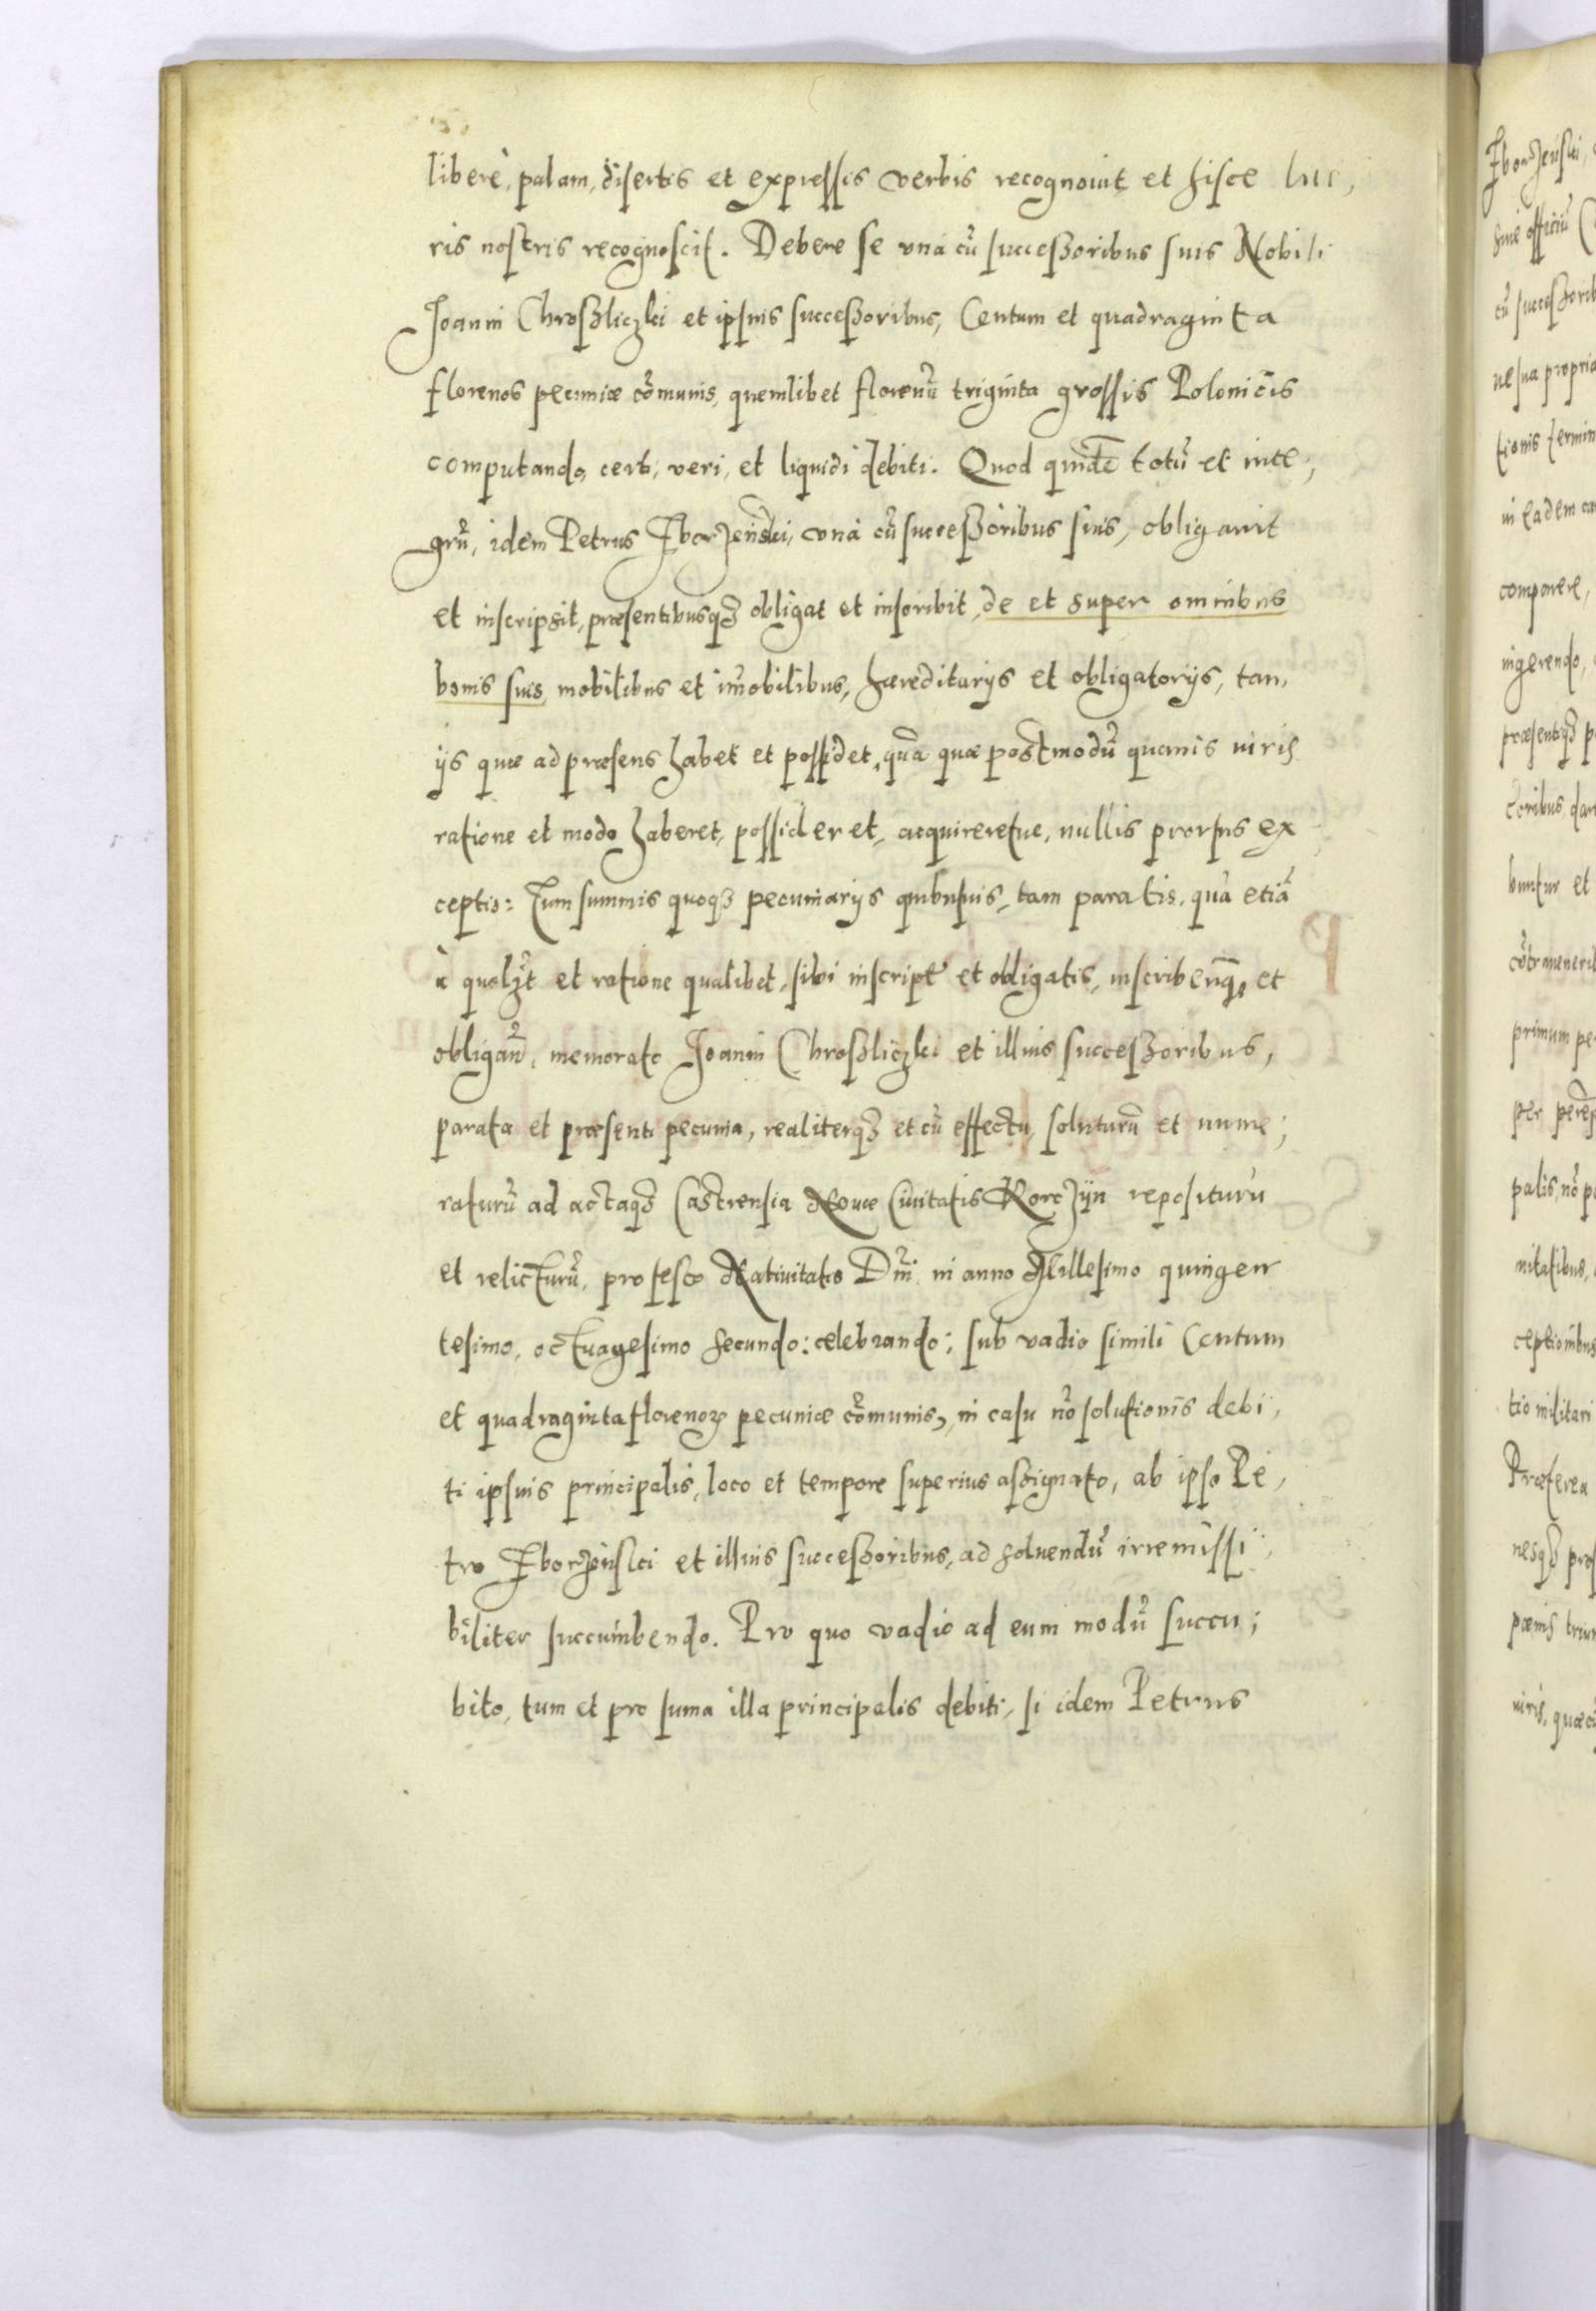 liberè, palam, disertis et expressis verbis recognouit et hisce lite,
ris nostris recognoscit. Debere se vnà cũ successoribus suis Nobili
Joanni Chroszliczki et ipsius successoribus, Centum et quadraginta
florenos pecuniæ cõmunis, quemlibet florenũ triginta grossis Polonicis
computando, certi, veri, et liquidi debiti. Quod quidẽ totũ et inte,
grũ, idem Petrus Zborzenski, vnà cũ successoribus suis, obligauit
et inscripsit, præsentibusqꝫ obligat et inscribit, de et super omnibus
bonis suis, mobilibus et im̃obilibus, hæreditarijs et obligatorijs, tam
ijs quæ ad præsens habet et possidet, quã quæ postmodũ quouis iuris
ratione et modo haberet, possideret, acquireretue, nullis prorsus ex
ceptis: Tum summis quoqꝫ pecuniarijs quibusuis, tam paratis, quã etiã
à quolꝫt et ratione qualibet, sibi inscriptꝭ et obligatis, inscribenqꝫ, et
obligañ, memorato Joanni Chroszliczki et illius successoribus,
parata et præsenti pecunia, realiterqꝫ et cũ effectu, soluturũ et nume;
raturũ ad actaqꝫ Castrensia Nouæ Ciuitatis Korczÿn repositurũ
et relicturũ, pro festo Natiuitatis Dñi in anno Millesimo quingen
tesimo, octuagesimo secundo: celebrando; sub vadio simili Centum
et quadraginta florenoꝝ pecuniæ cõmunis, in casu nõ solutionis debi,
ti ipsius principalis, loco et tempore superius assignato, ab ipso Pe,
tro Zborzenski et illius successoribus, ad soluendũ irremissi,
biliter succumbendo. Pro quo vadio ad eum modũ succu;
bito, tum et pro suma illa principalis debiti, si idem Petrus